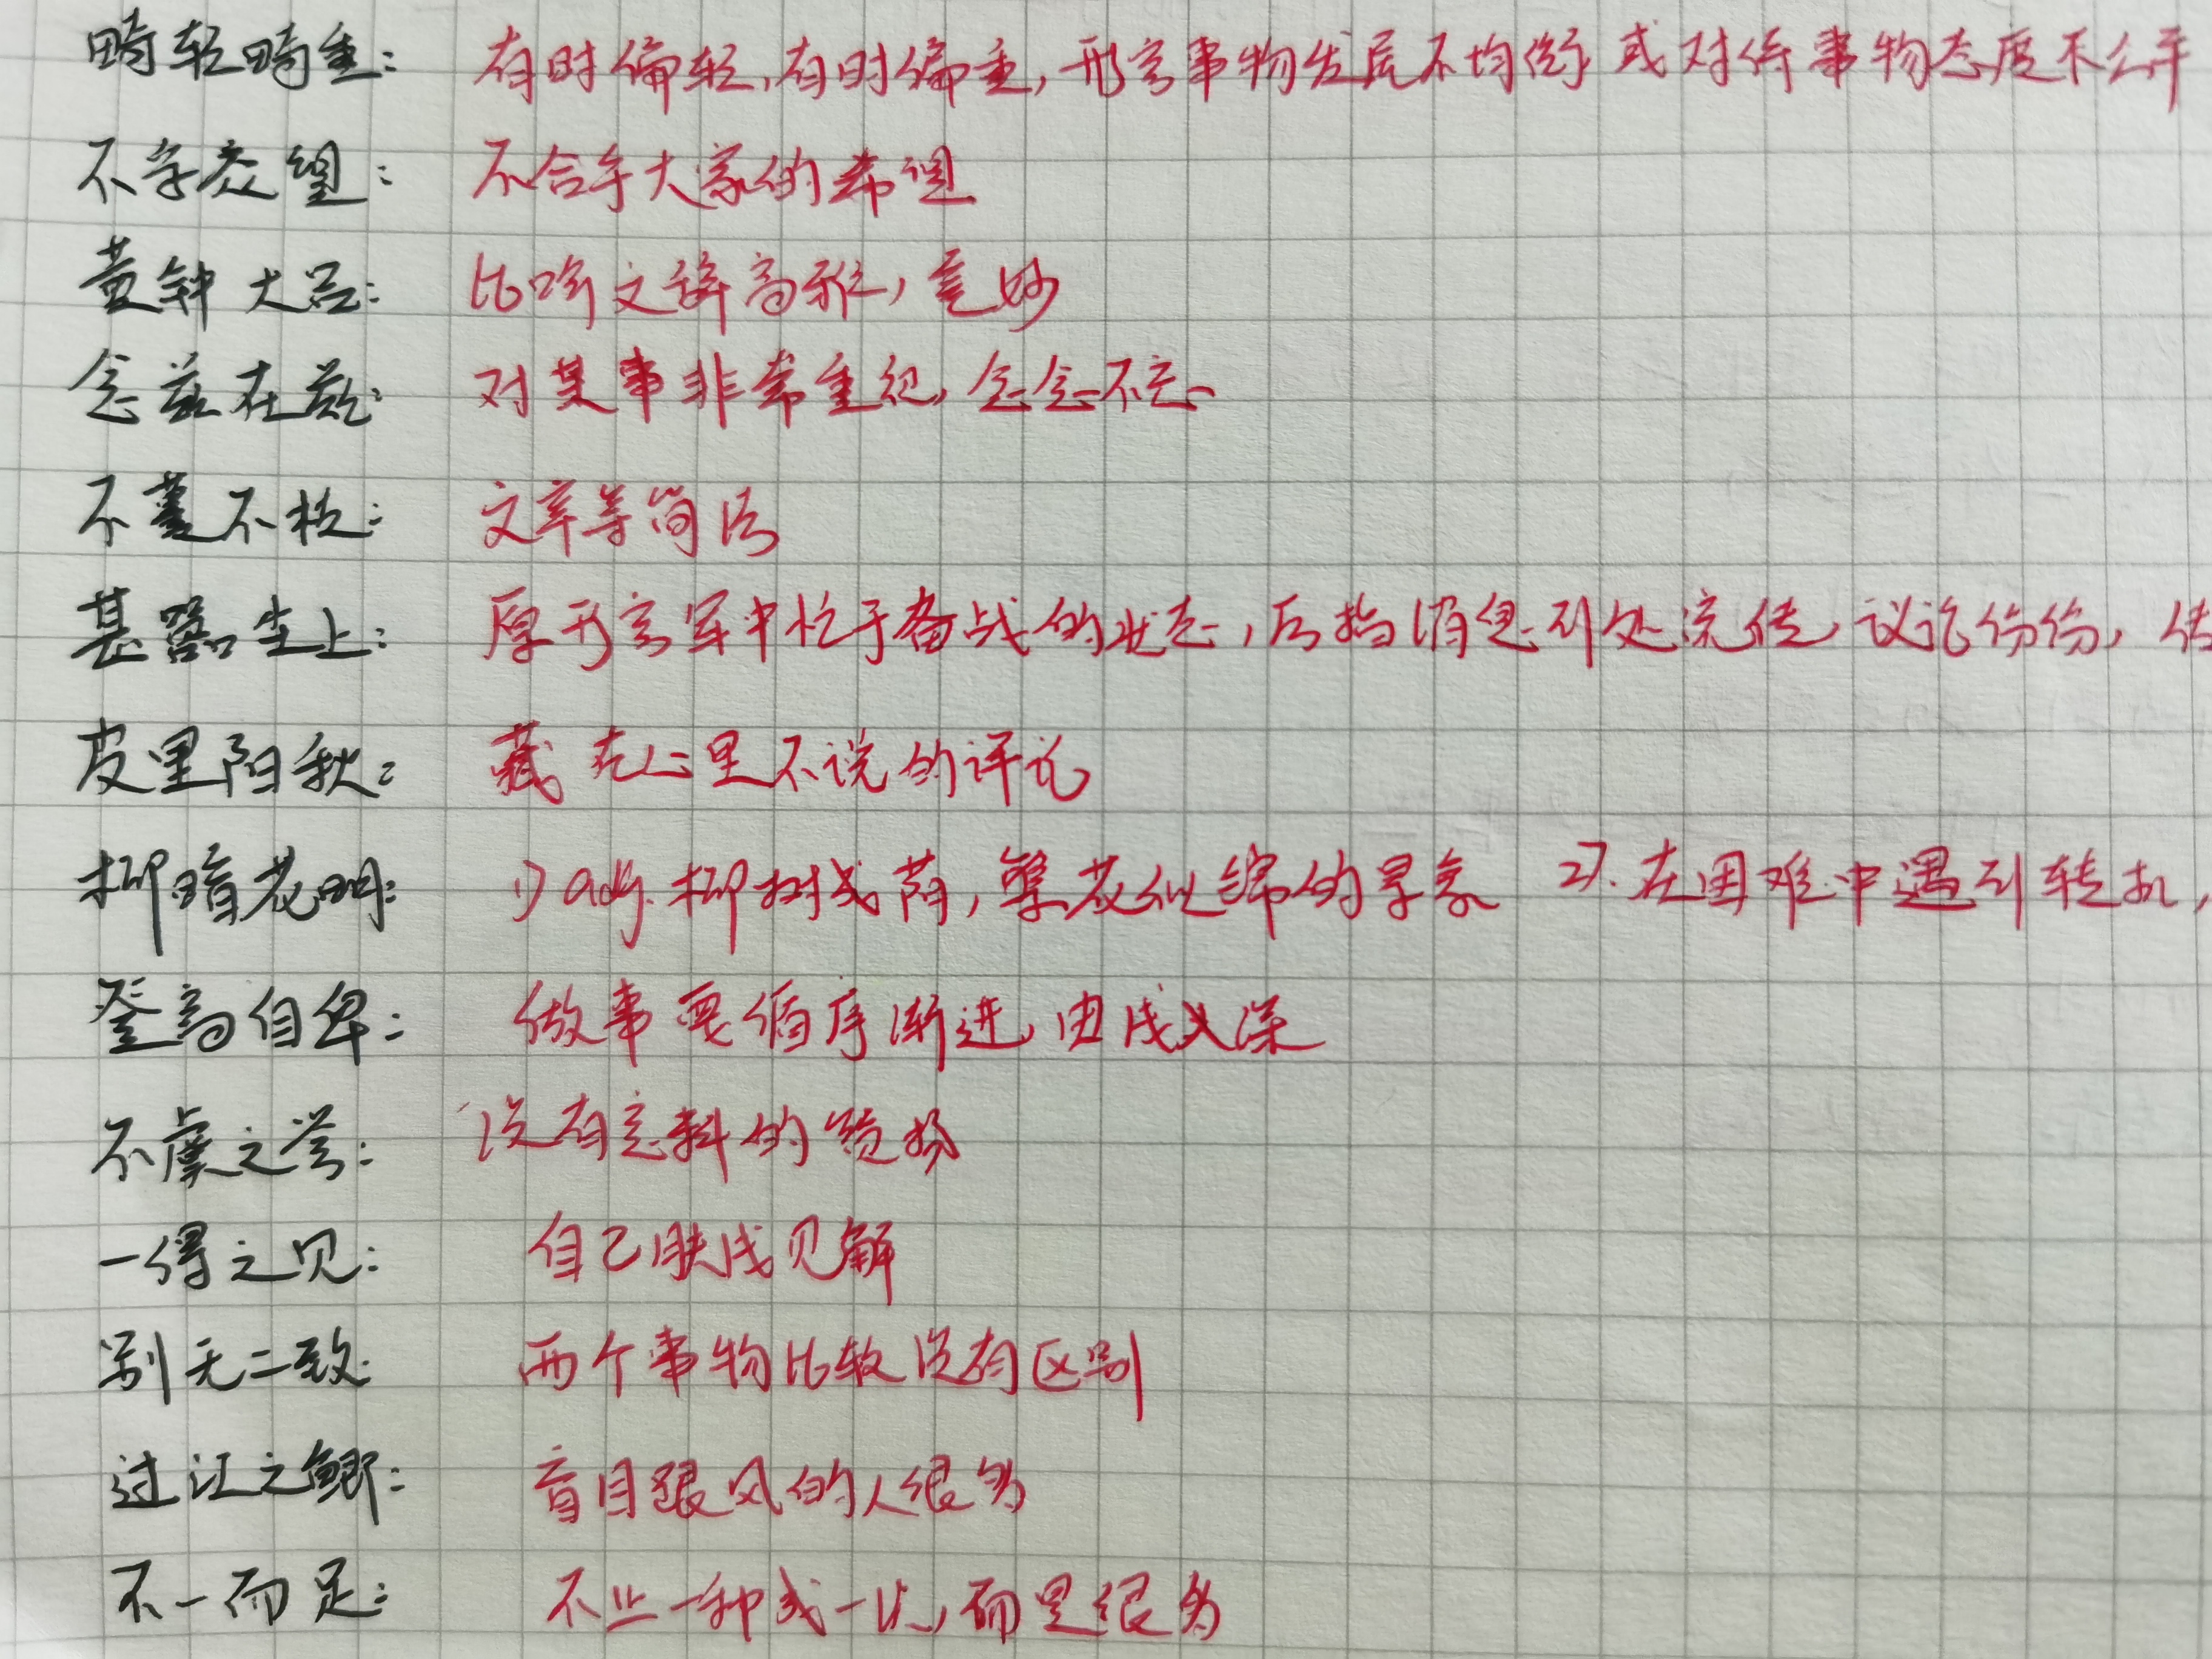 畸轻畸重：有时偏轻，有时偏重，形容事物发展不均衡 或对待事物态度不公平
不孚众望：不合乎大家的希望
黄钟大吕：比喻文辞高雅，美妙
念兹在兹：对某事非常重视，念念不忘
不蔓不枝：文章等简洁
甚嚣尘上：原形容军中忙于备战的状态，后指消息到处流传，议论纷纷，传
皮里阳秋：藏在心里不说的评论
柳暗花明：1) adj. 柳树成荫，繁花似锦的景象 2). 在困难中遇到转机，
登高自卑：做事要循序渐进，由浅入深
不虞之誉：没有意料的赞扬
一得之见：自己肤浅见解
别无二致：两个事物比较没有区别
过江之鲫：盲目跟风的人很多
不一而足：不止一种或一次，而是很多